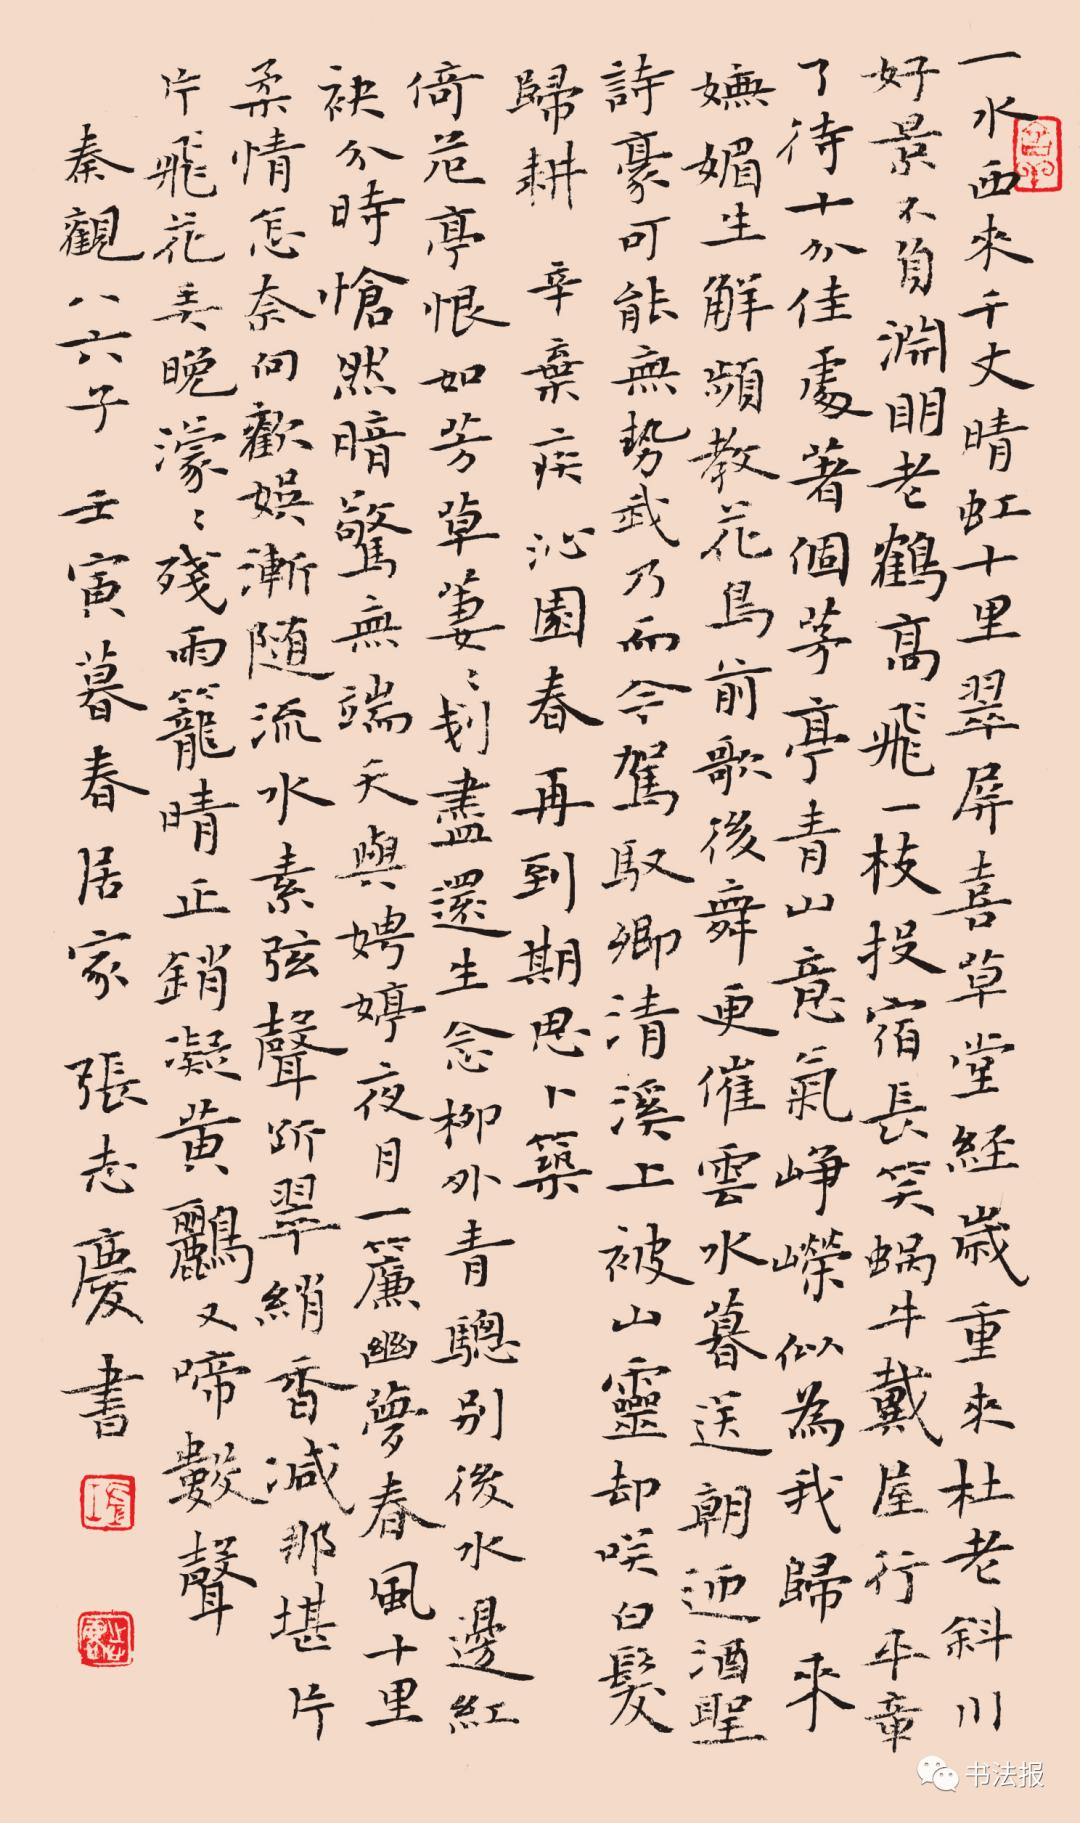 一水西來千丈晴虹十里翠屏喜草堂經歲重來杜老斜川
好景不負淵明老鶴高飛一枝投宿長笑蝸牛戴屋行平章
了待十分佳處著個茅亭青山意氣崢嶸似為我歸來
嫵媚生解頻教花鳥前歌後舞更催雲水暮送朝迎酒聖
詩豪可能無勢我乃而今駕馭卿清溪上被山靈却咲白髮
歸耕 辛棄疾沁園春再到期思卜築
倚危亭恨如芳草萋〻剗盡還生念柳外青驄別後水邊紅
袂分時愴然暗驚無端天與娉婷夜月一簾幽夢春風十里
柔情怎奈向歡娛漸隨流水素弦聲斷翠綃香減那堪片
片飛花弄晚濛〻殘雨籠晴正銷凝黃鸝又啼數聲
秦觀八六子 壬寅暮春居家 張志慶書
书法报